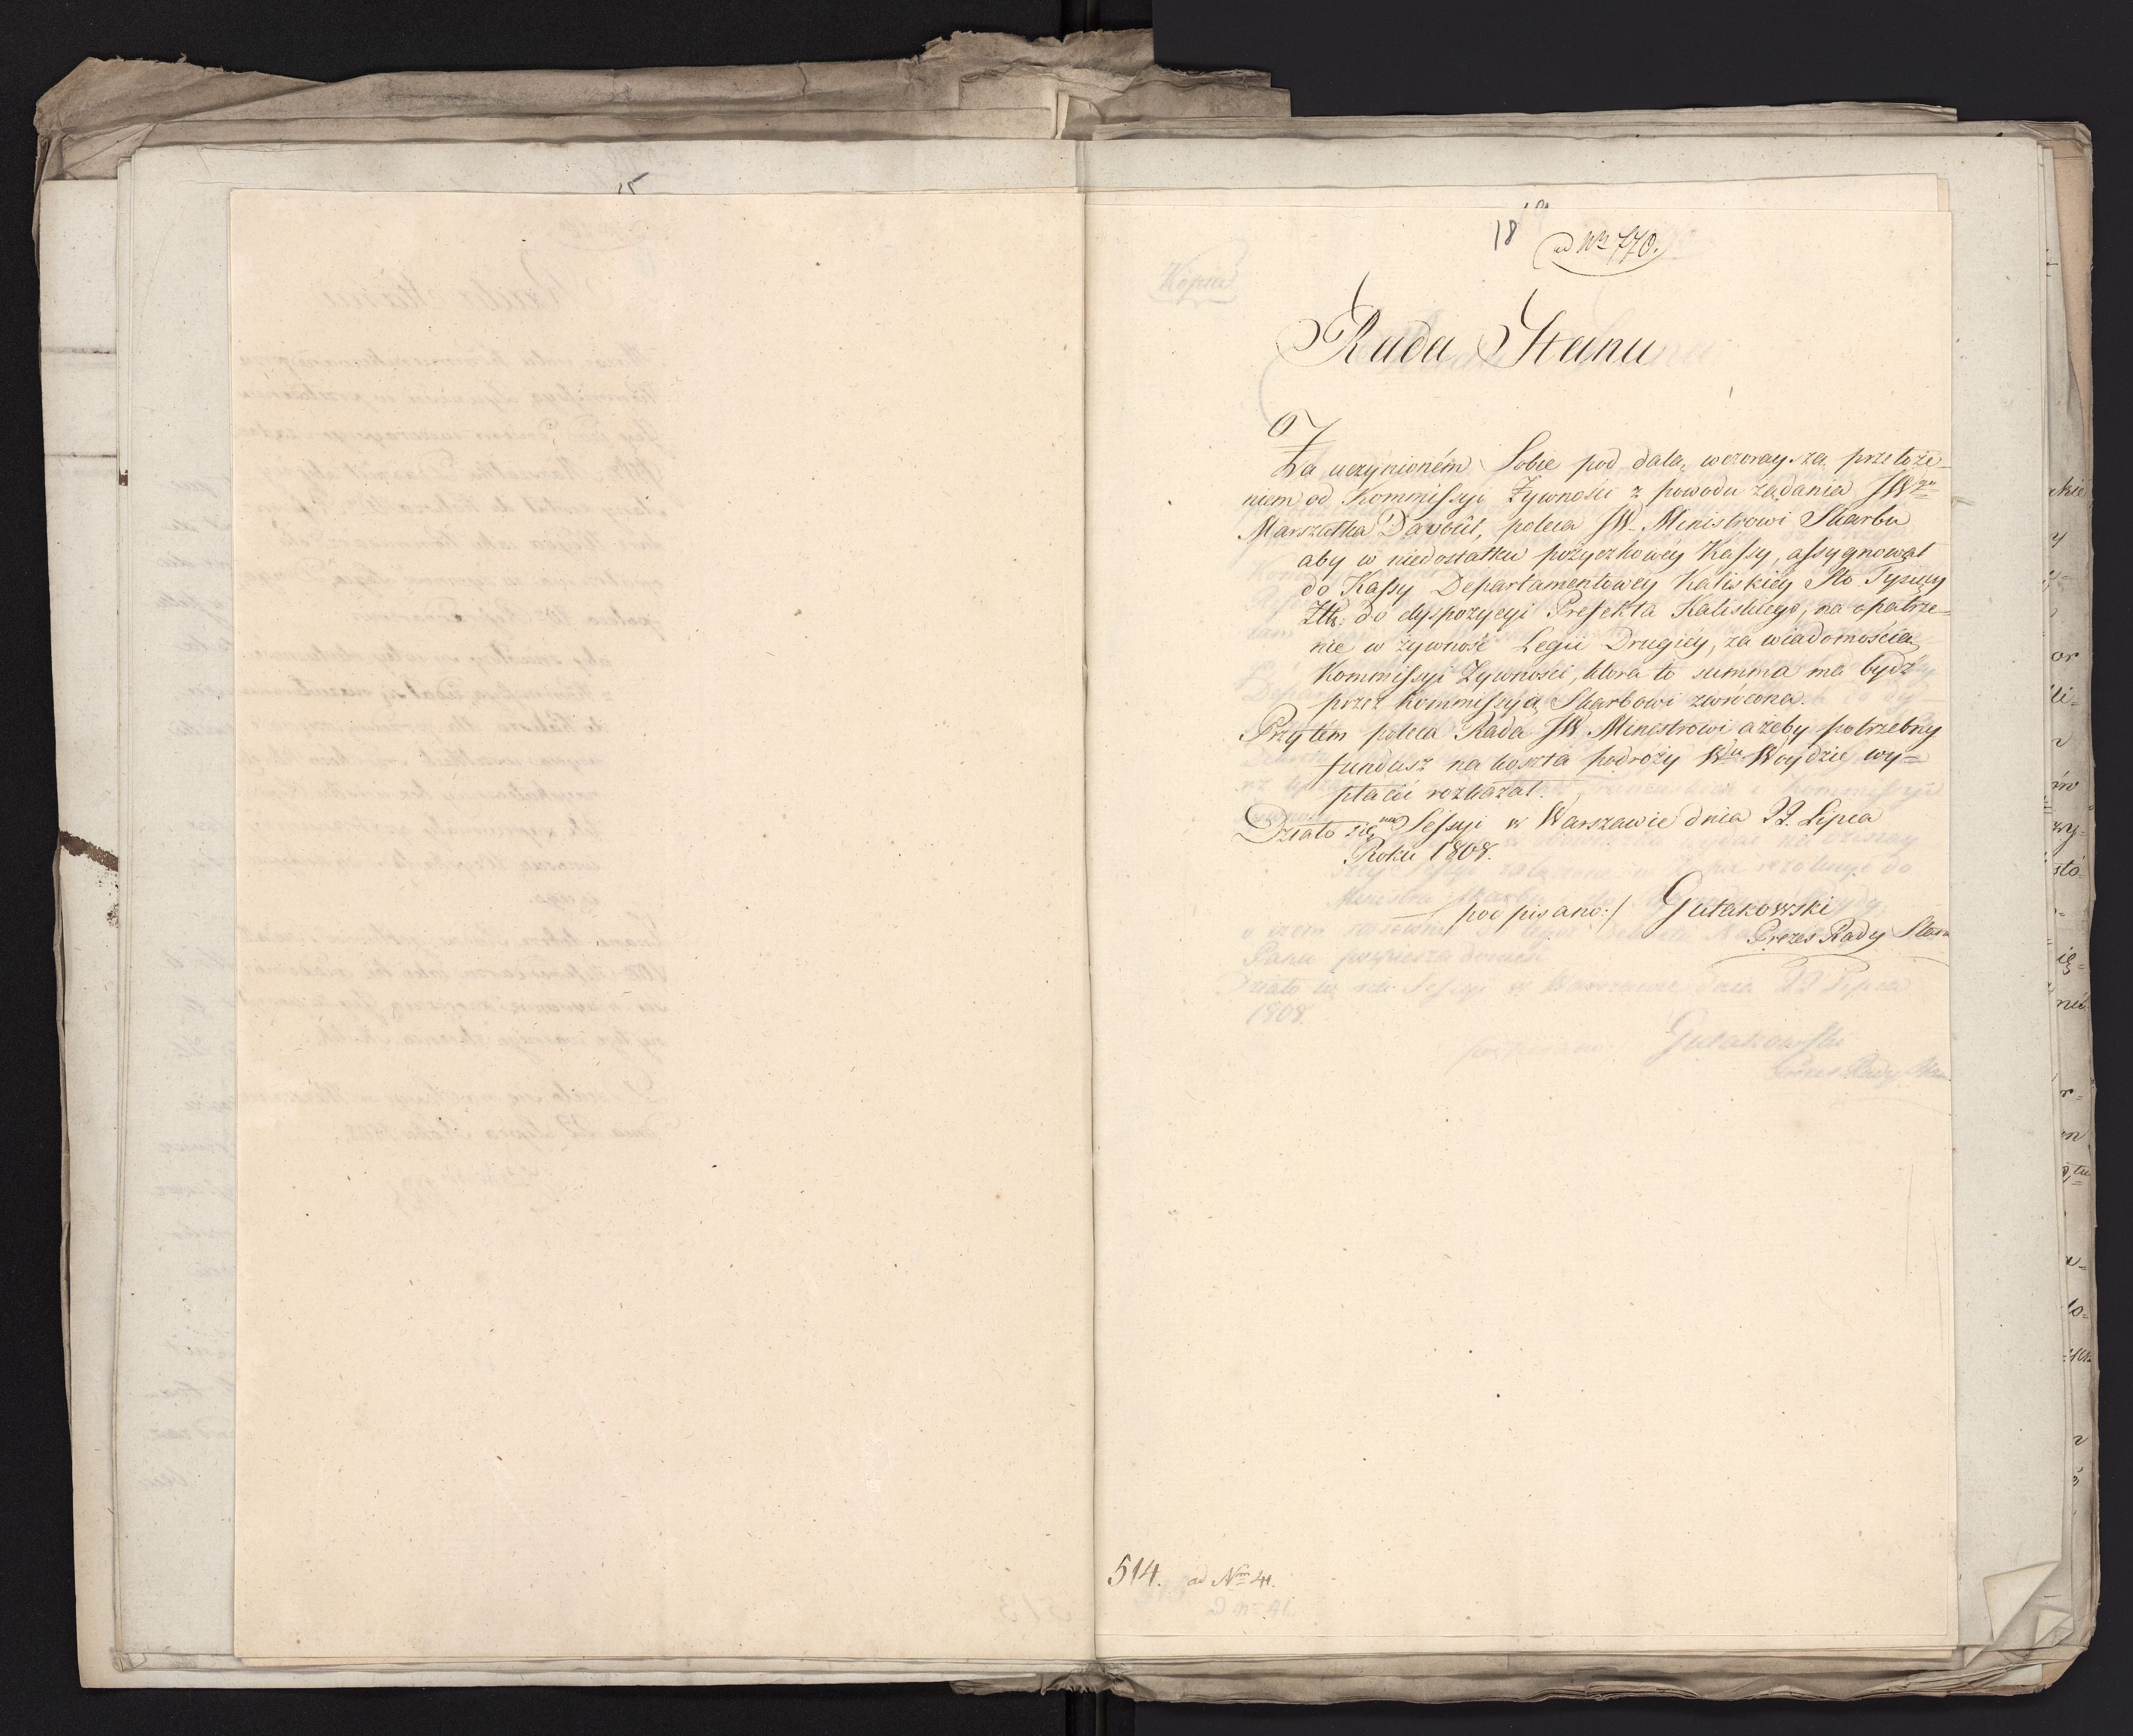 18
ad Nr 770.
Rada Stanu
Za uczynioném Sobie pod datą wczorayszą przełoże-
niem od Kommissyi Żywności z powodu żądania JWgo
Marszałka Davoût, poleca JW. Ministrowi Skarbu
aby w niedostatku pożyczkowéy Kassy, assygnował
do Kassy Departamentowéy Kaliskiéy Sto Tysięcy
Złł. do dyspozycyi Prefekta Kaliskiego, na opatrze-
nie w żywność Legii Drugiéy, za wiadomością
Kommissyi Żywności, która to summa ma bydź
przez Kommissyją Skarbowi zwrócona.
Przytém poleca Rada JW. Ministrowi ażeby potrzebny
fundusz na koszta podróży Wu Woydzie wy=
płacić rozkazał.
Działo się na Sessyi w Warszawie dnia 22. Lipca
Roku 1808.
podpisano:/ Gutakowski
Prezes Rady Stanu
514. ad Nrm 41.